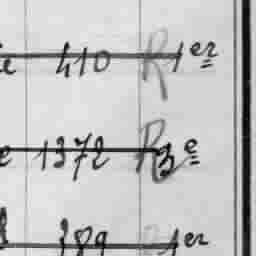 410 R 1er
1372 R 3e
389 R 1er